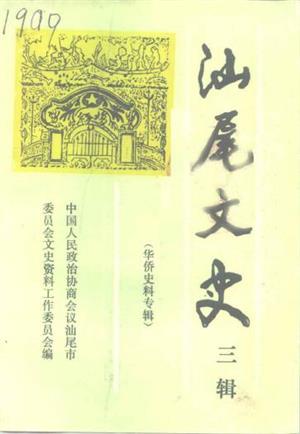 1900
汕尾文史
三辑
(华侨史料专辑)
中国人民政治协商会议汕尾市
委员会文史资料工作委员会编